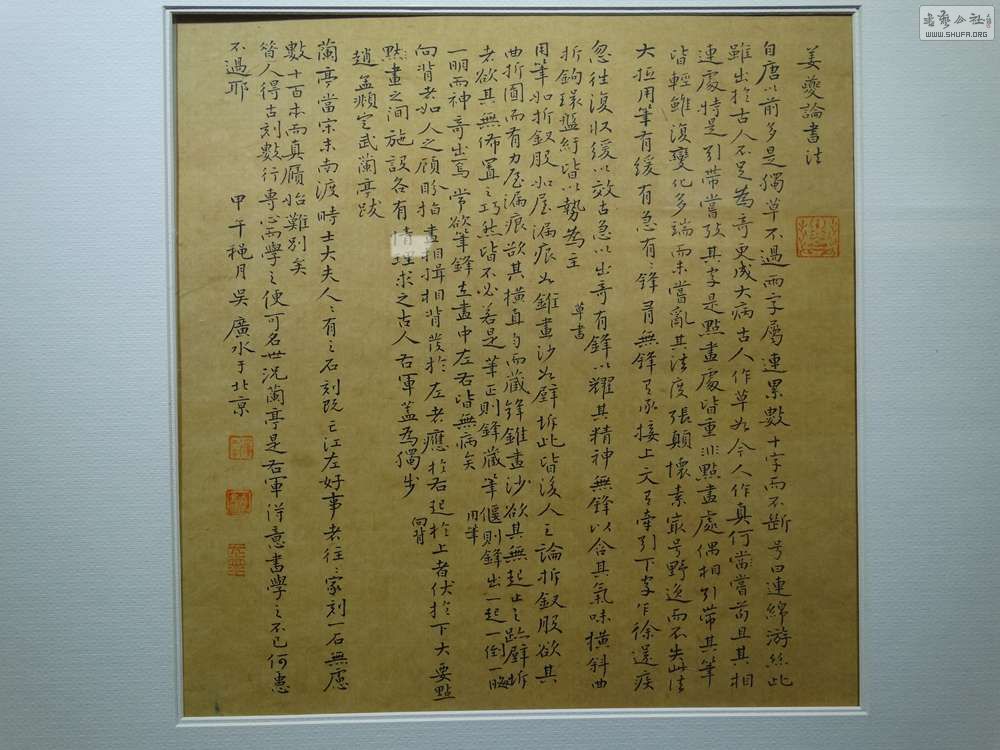 姜夔論書法
自唐以前多是獨草不過兩字屬連累數十字而不斷号曰連綿游絲此
雖出於古人不足為奇更成大病古人作草如今人作真何嘗苟且其相
連處特是引帶嘗攷其字是點畫處皆重非點畫處偶相引帶其筆
皆輕雖復變化多端而未嘗亂其法度張顛懷素最号野逸而不失此法
大抵用筆有緩有急有鋒有無鋒有承接上文有牽引下字乍徐還疾
忽往復收緩以效古急以出奇有鋒以耀其精神無鋒以含其氣味橫斜曲
折鉤環盤紆皆以勢為主 草書
用筆如折釵股如屋漏痕如錐畫沙如壁坼此皆後人之論折釵股欲其
曲折圓而有力屋漏痕欲其橫直勻而藏鋒錐畫沙欲其無起止之跡壁坼
者欲其無佈置之巧然皆不必若是筆正則鋒藏筆偃則鋒出一起一倒一晦
一明而神奇出焉常欲筆鋒在畫中左右皆無病矣 用筆
向背者如人之顧盼指畫相揖相背發於左者應於右起於上者伏於下大要點
點畫之間施設各有情理求之古人右軍蓋為獨步 向背
趙孟頫定武蘭亭跋
蘭亭當宋末南渡時士大夫人々有之石刻既亡江左好事者往々家刻一石無慮
數十百本而真贋始難別矣
昝人得古刻數行專心而學之便可名世況蘭亭是右軍得意書學之不已何患
不過耶
甲午穐月吳廣水于北京
书艺公社
WWW.SHUFA.ORG